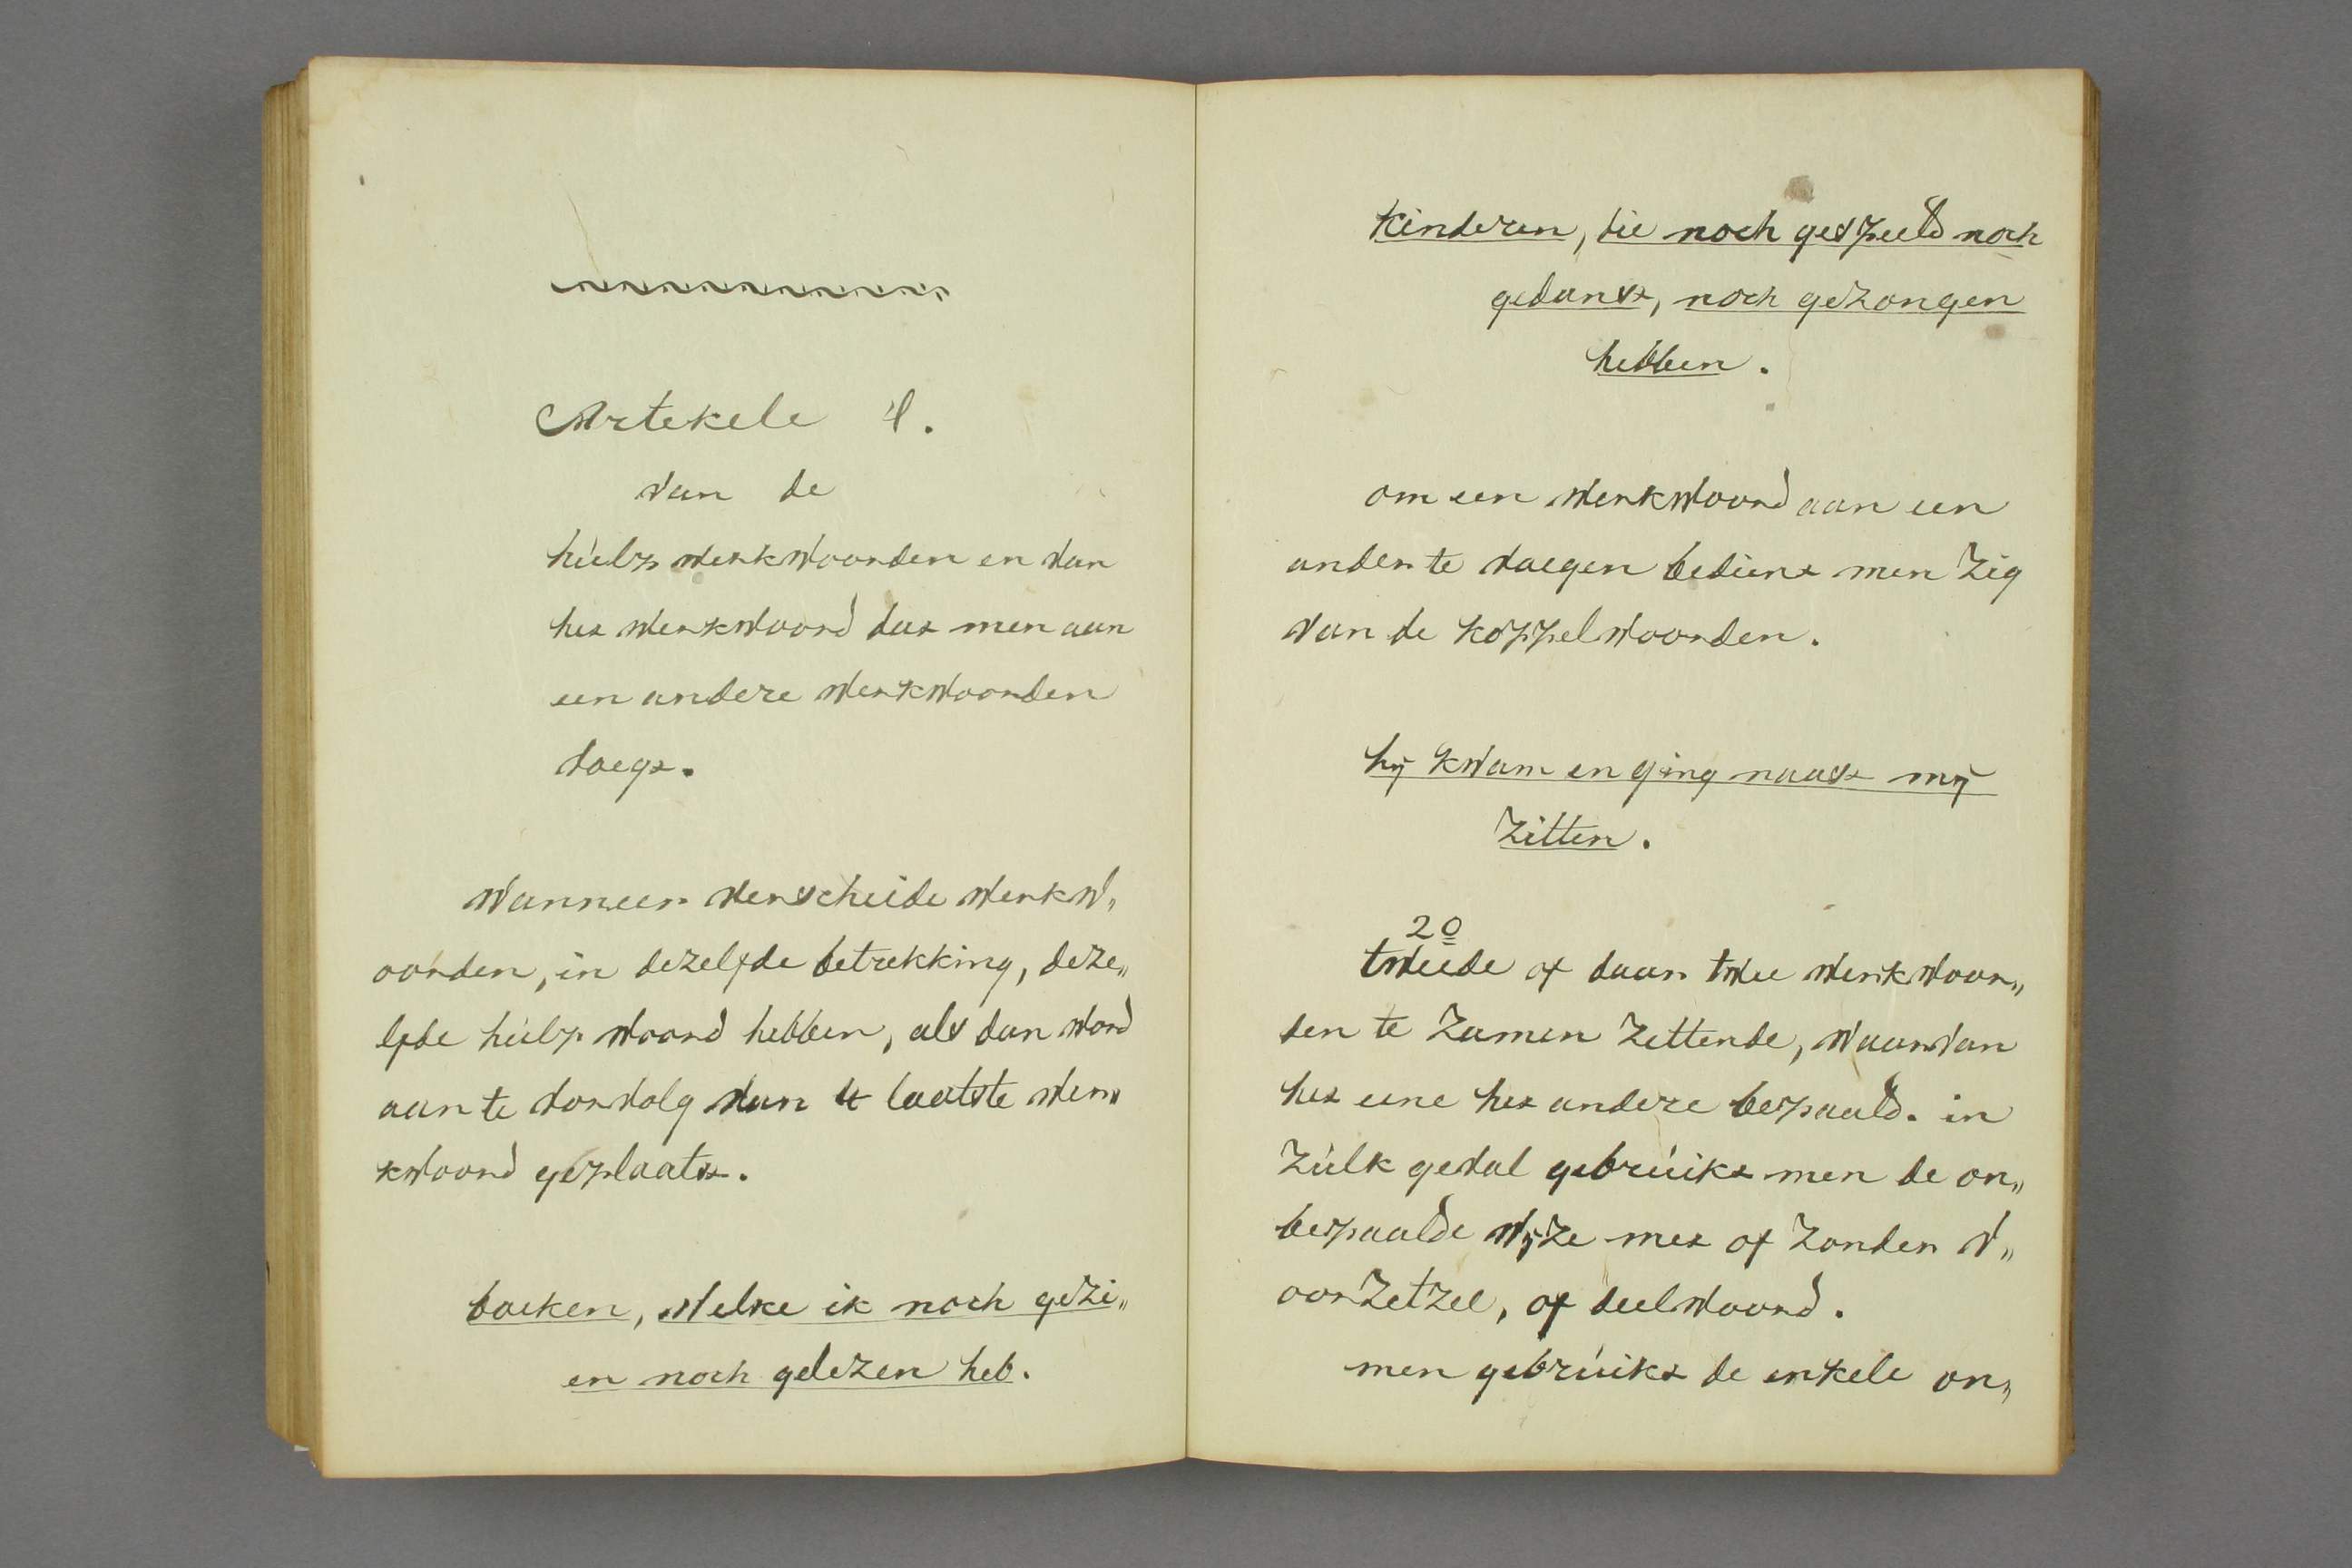 Artekele 4.
van de
hùlp werkwoorden en van
het werkwoord dat men aan
een andere werkwoorden
voegt.
Wanneer verscheide werkw„
oorden, in dezelfde betrekking, deze„
lfde hùlp woord hebben, als dan word
aan te vorvolg van 't laatste wer„
kwoord geplaatst.
boeken, welke ik noch gezi„
en noch gelezen heb.
Kinderen, die noch gespeeld noch
gedanst, noch gezongen
hebben.
om een werkwoord aan een
ander te voegen bedient men zig
van de koppelwoorden.
hij kwam en ging naast mij
zitten.
2o
tweede of daar twee werkwoor„
den te zamen zettende, waarvan
het eene het andere bepaald. in
zùlk geval gebrùikt men de on„
bepaalde wijze met of zonder v„
oorzetzel, of deelwoord.
men gebrùikt de enkele on„